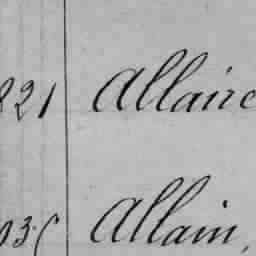 821 Allaire
Allain,